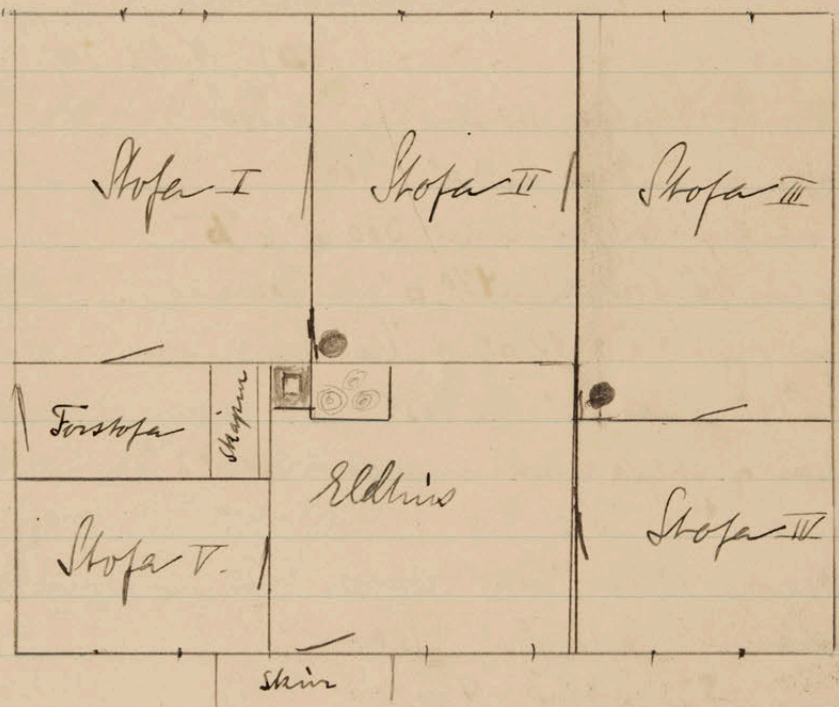 Stofa I
Stofa II
Stofa III
Forstofa
Skápur
Eldhús
Stofa IV
Stofa V.
Skúr